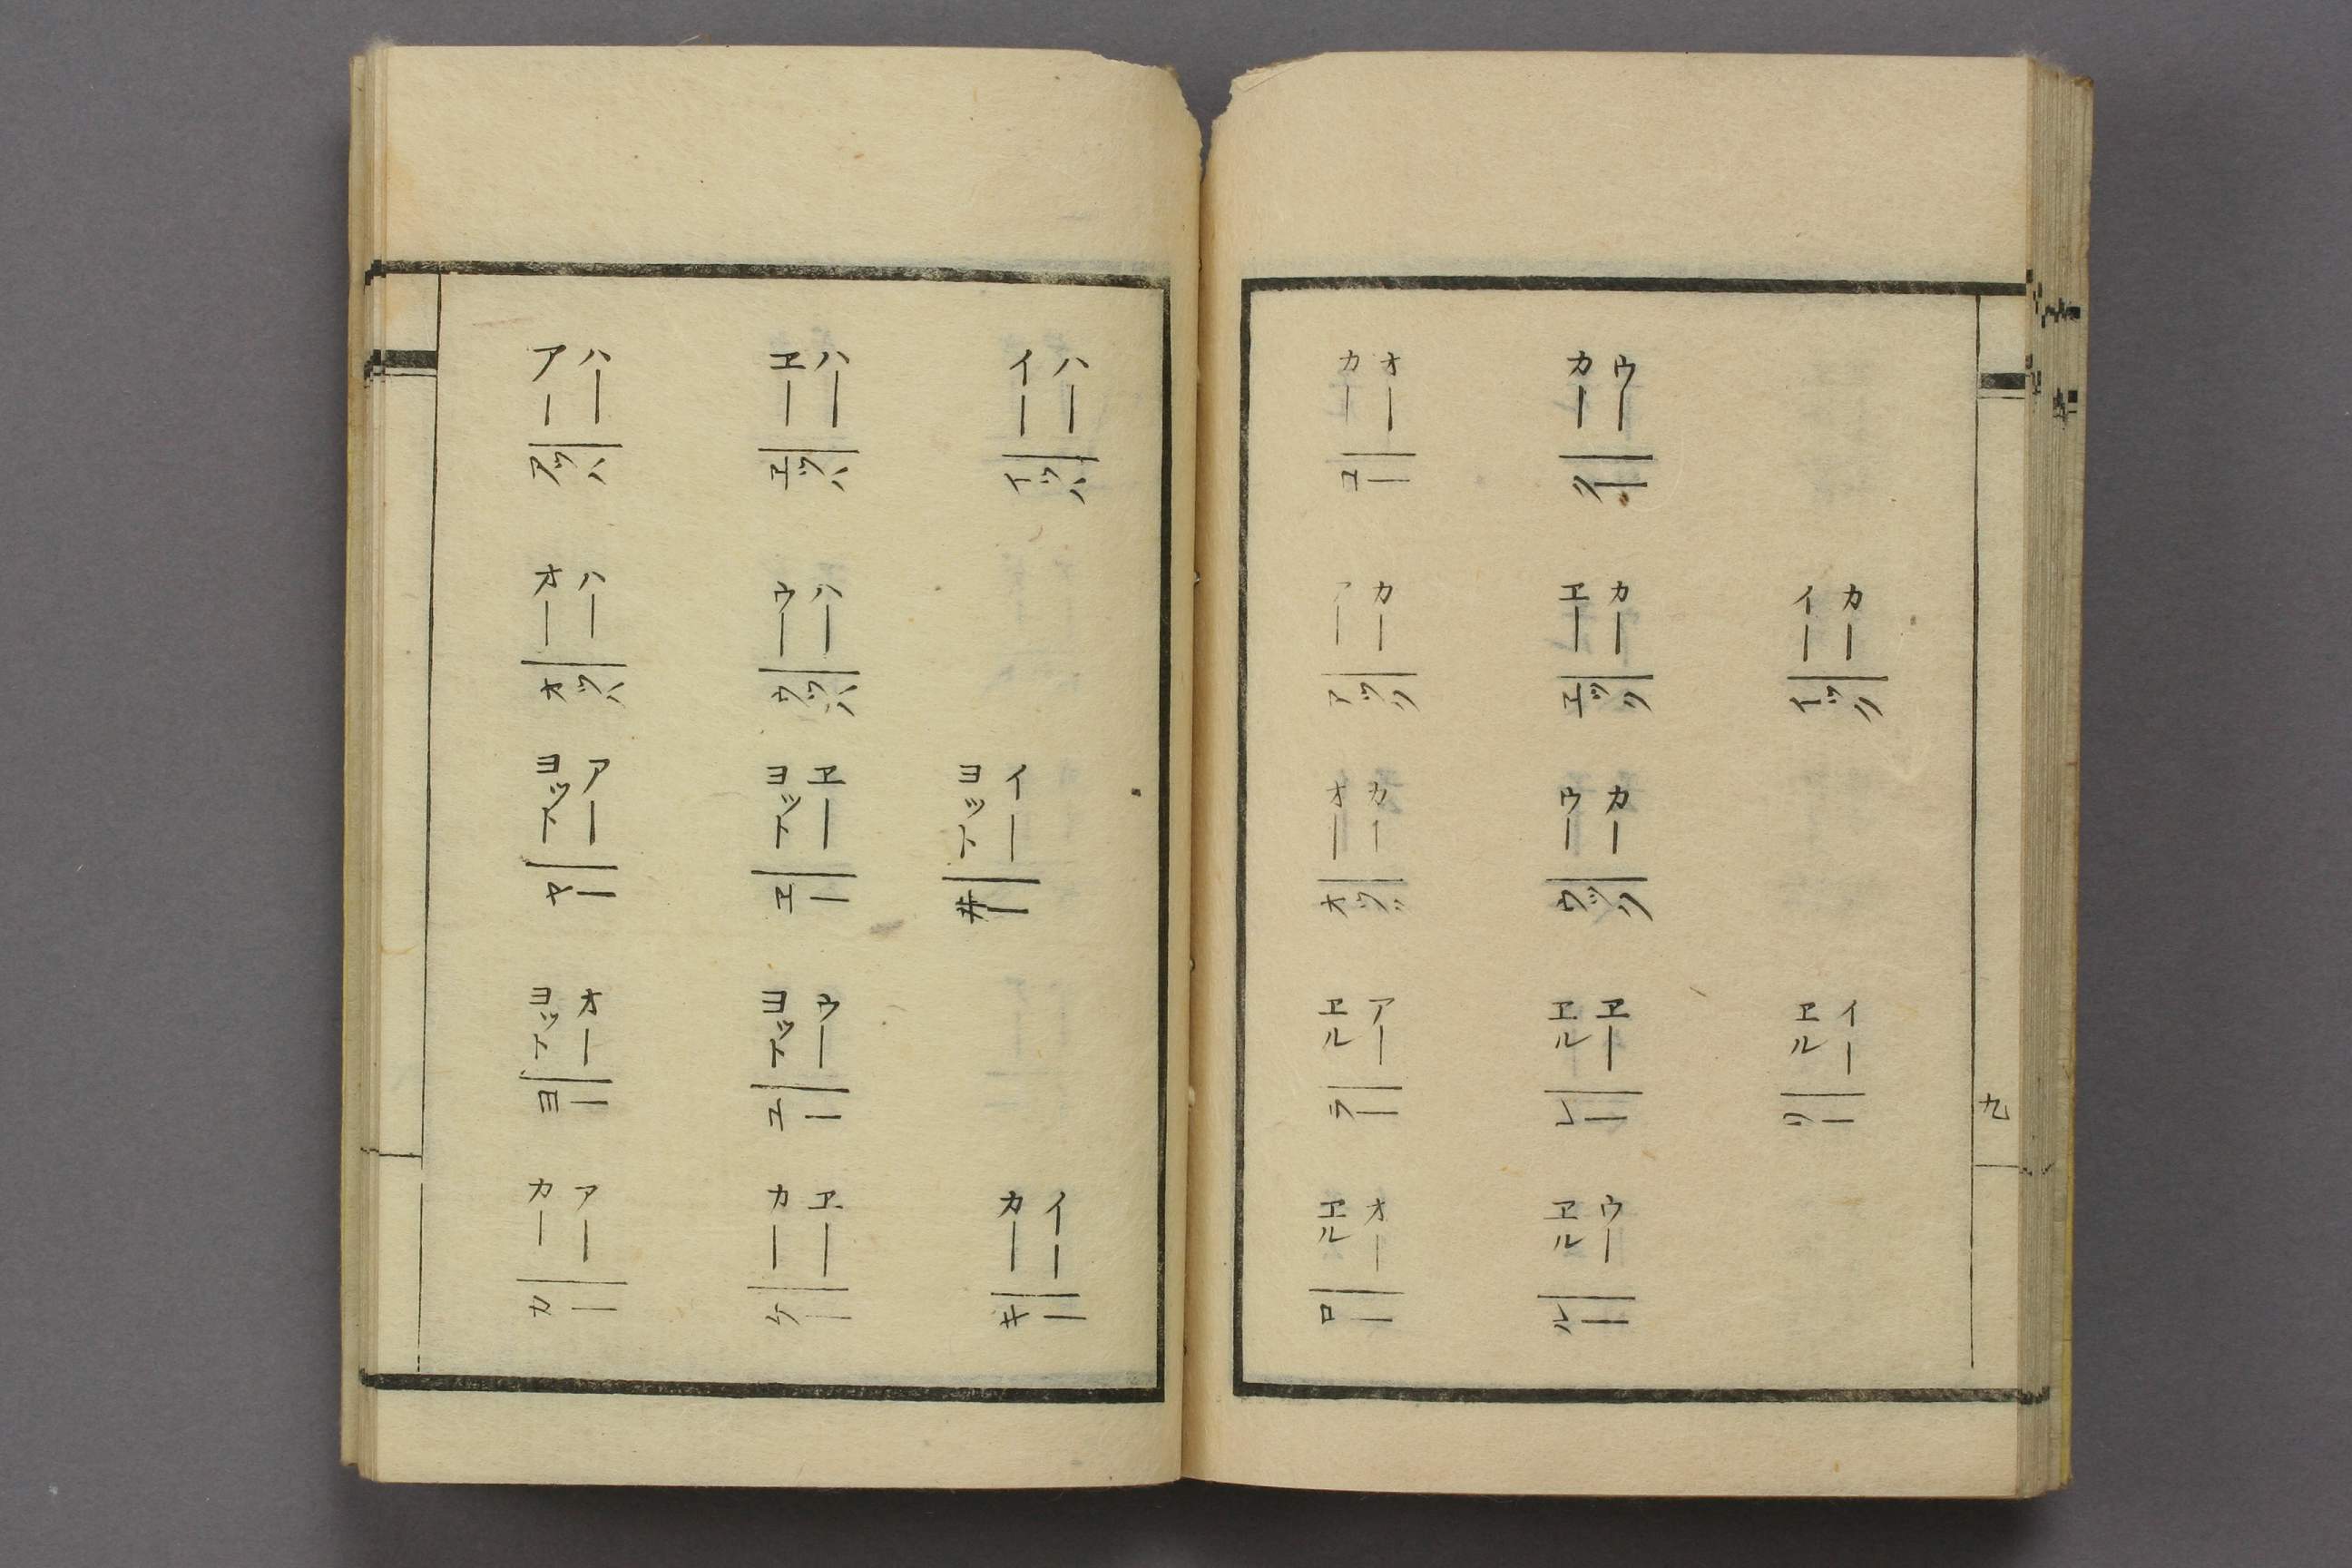 アー
ハー
アッハ
ヱー
ハー
ヱッハ
イー
ハー
イッハ
オー
ハー
オッハ
ウー
ハー
ウッハ
ヨット
アー
ヤー
ヨット
ヱー
ヱー
ヨット
イー
井ー
ヨット
オー
ヨー
ヨット
ウー
ユー
カー
アー
カー
カー
ヱー
ケー
カー
イー
キー
カー
オー
コー
カー
ウー
クー
アー
カー
アック
ヱー
カー
ヱック
イー
カー
イック
オー
カー
オック
ウー
カー
ウック
ヱル
アー
ラー
ヱル
ヱー
レー
ヱル
イー
リー
ヱル
オー
ロー
ヱル
ウー
ルー
九